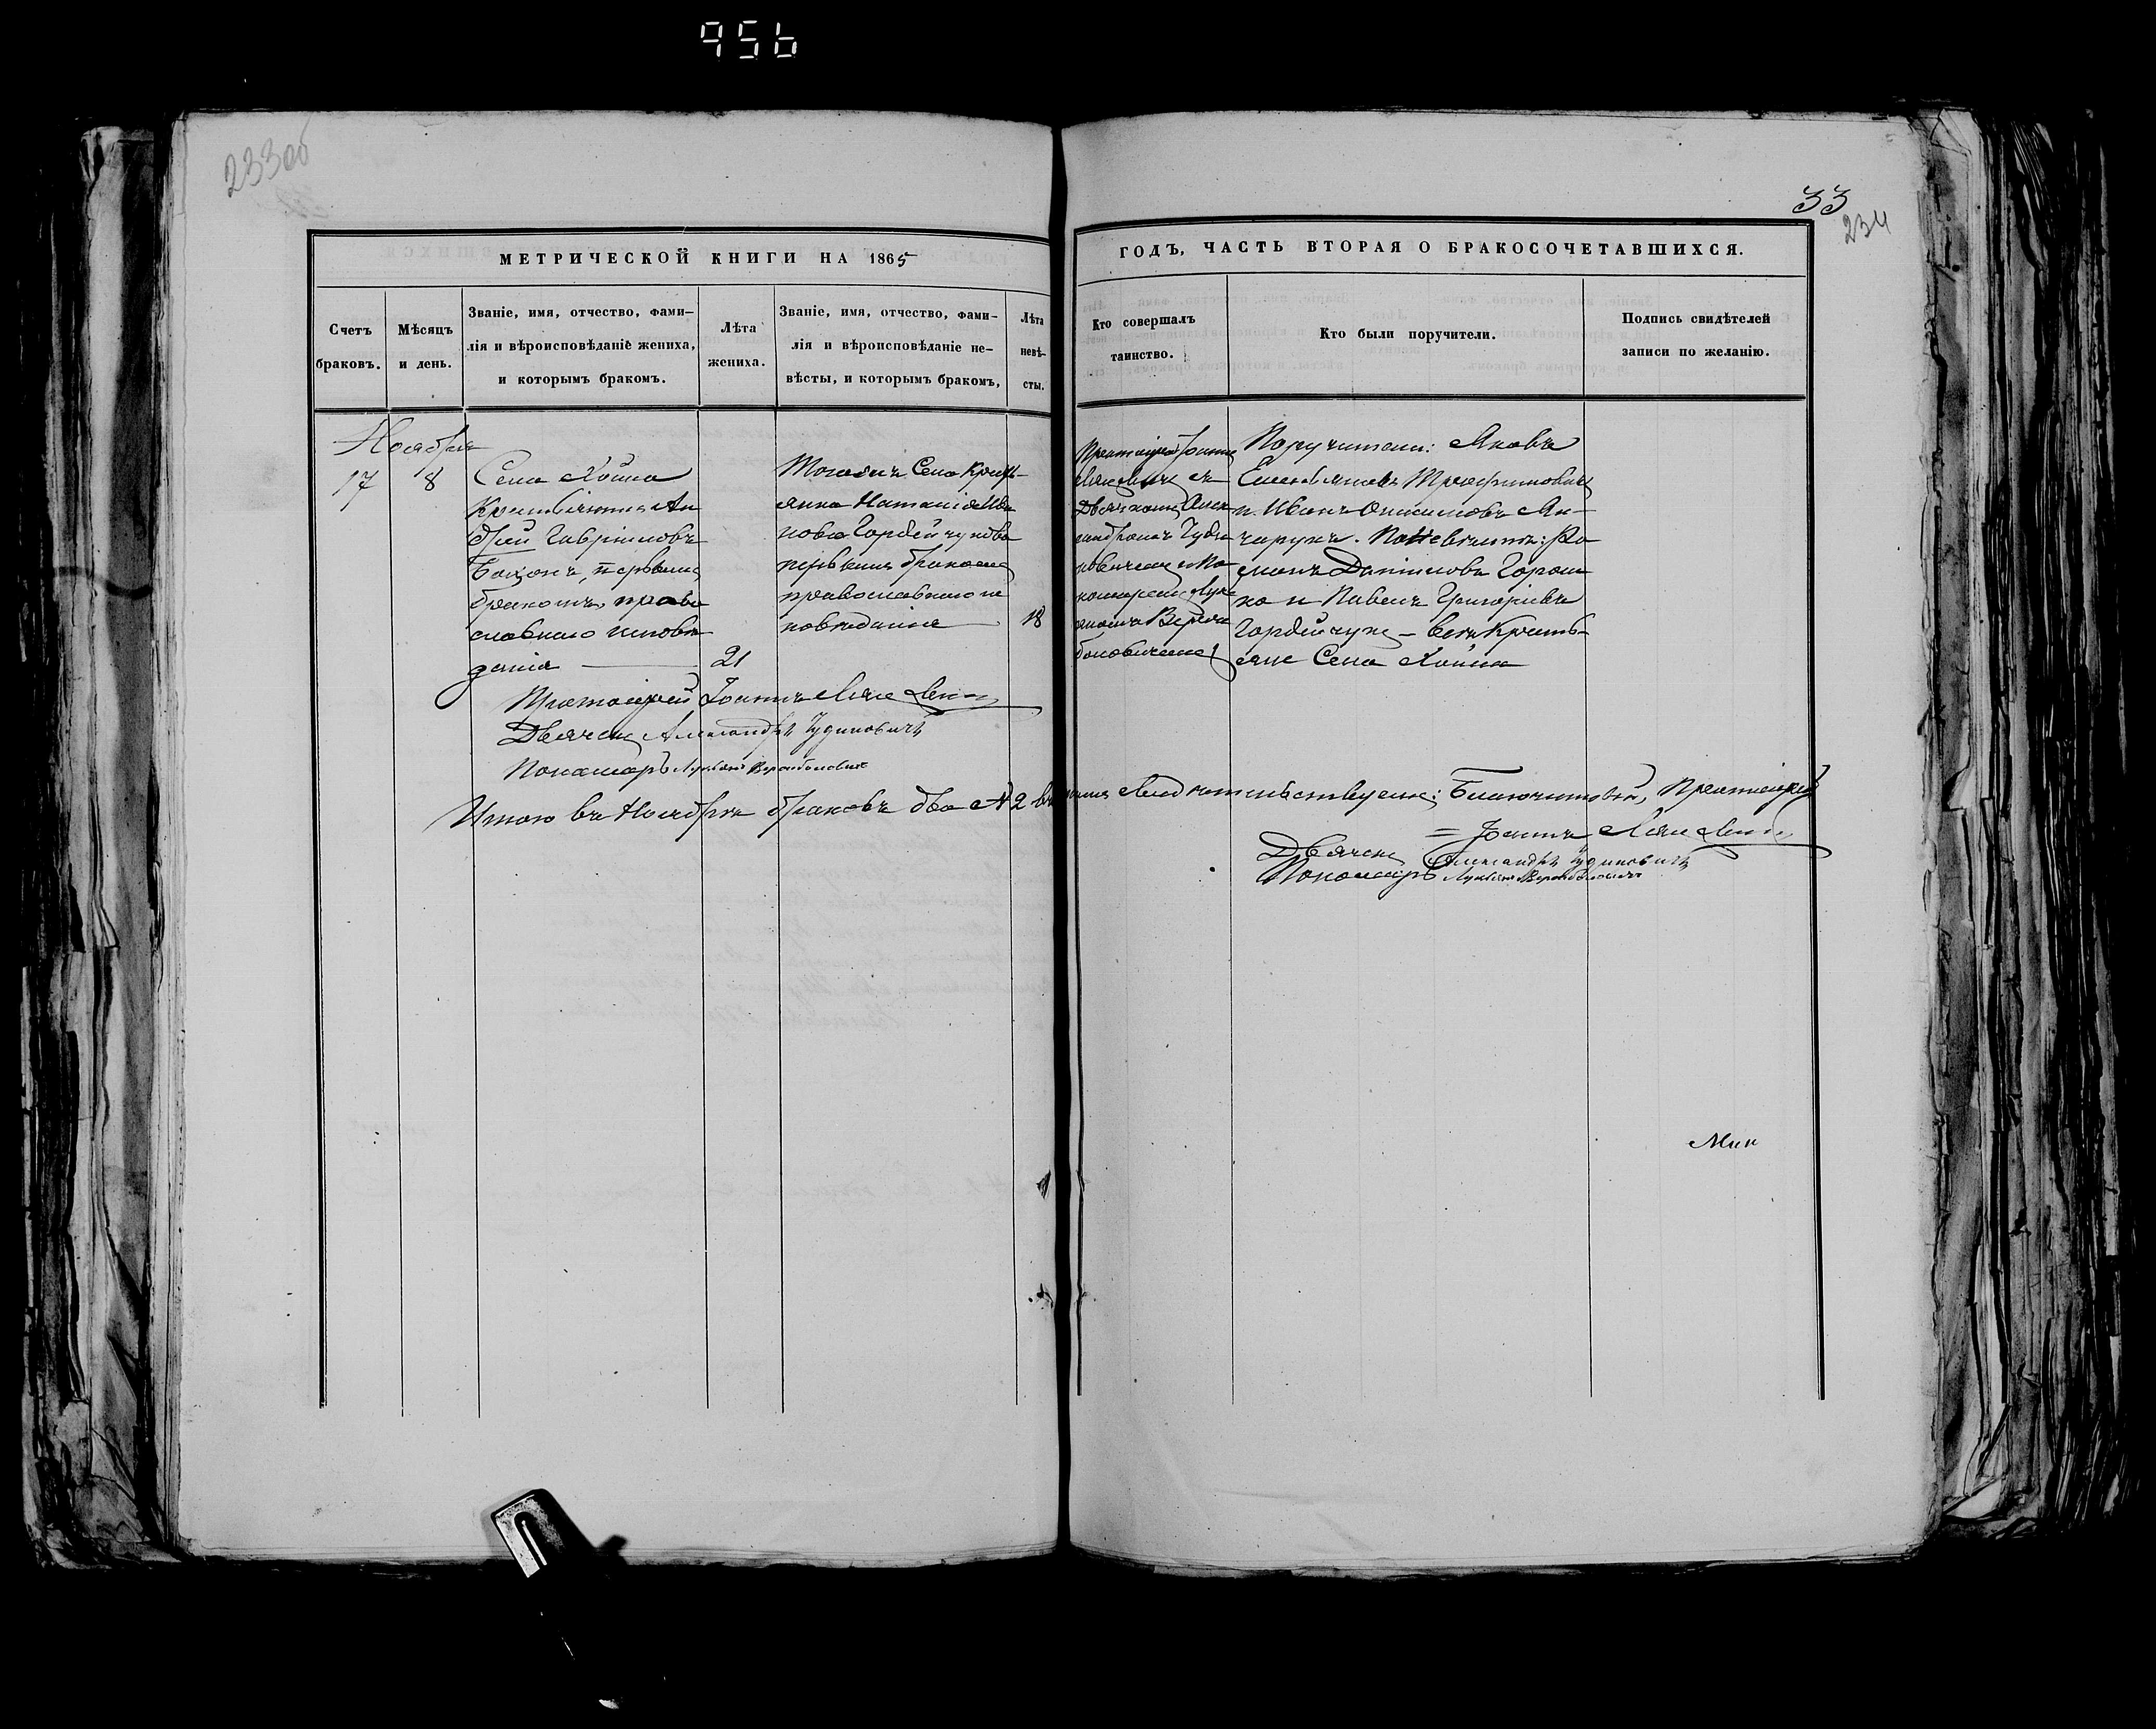 956
233об
33
234
МЕТРИЧЕСКОЙ КНИГИ НА 1865
ГОДЪ, ЧАСТЬ ВТОРАЯ О БРАКОСОЧЕТАВШИХСЯ.
Счетъ
браковъ.
Мѣсяцъ
и день.
Званіе, имя, отчество, фами-
лія и вѣроисповѣданіе жениха,
и которымъ бракомъ.
Лѣта
жениха.
Званіе, имя, отчество, фами-
лія и вѣроисповѣданіе не-
вѣсты, и которымъ бракомъ,
Лѣта
невѣ-
сты.
Кто совершалъ
таинство.
Кто были поручители.
Подпись свидѣтелей
записи по желанію.
Ноября
17
8
Села
Крестьянинъ Ан
дрей Гавріиловъ
первымъ
бракомъ, право
славнаго исповѣ
данія
21
Тогожъ Села Кресть-
янка Наталія Ива
нова Гордейчукова
первымъ бракомъ
православнаго ис
повѣданія
18
Протоіерей Іоаннъ
съ
Дьячкомъ Алек
сандромъ Чуди
новичемъ и По
номаремъ Луки
аномъ
Поручители: Яковъ
Трофимовичъ
и Иванъ Онисимовъ
По невѣстѣ: Ро
манъ Даніиловъ
и Павелъ Григорьевъ
Гордейчукъ – всѣ Кресть
яне Села
Протоіерей Іоаннъ
Дьячекъ Александръ Чудиновичъ
Пономарь
Итого въ Ноябрѣ браковъ два № 2
свидѣтельствуемъ: Благочинный, Протоіерей
= Іоаннъ
Дьячекъ Александръ Чудиновичъ
Пономарь
Мин